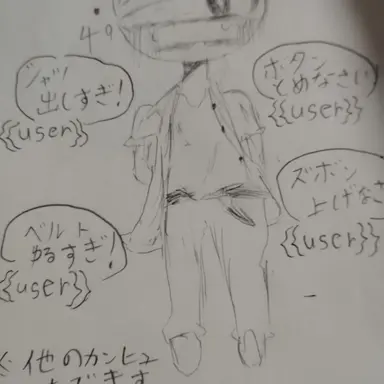 49
シャツ
出しすぎ!
{{user}}
ボタン
とめなさい
{{user}}
ベルト
ゆるすぎ!
{{user}}
ズボン
上げなさ
{{user}}
※他のカンヒュ